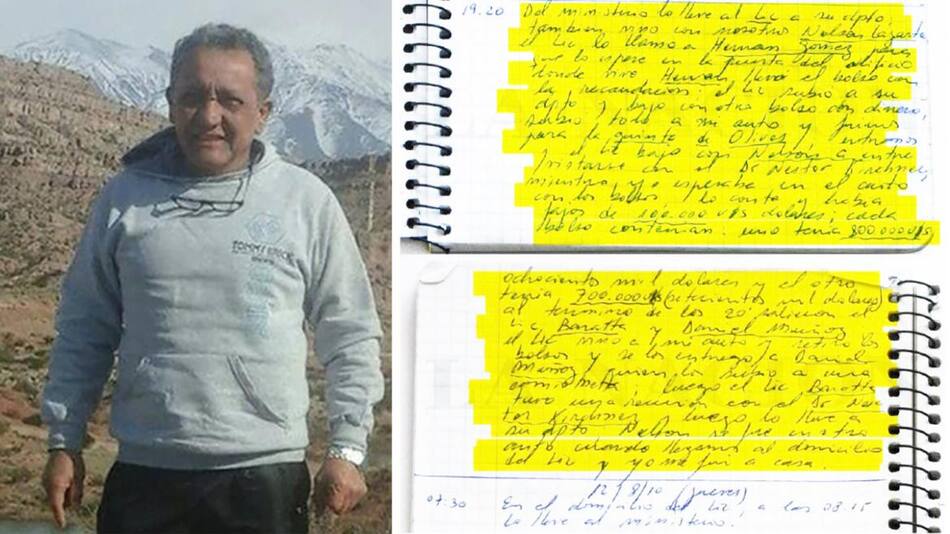 TOMMY
19.20 Del ministerio lo lleve al Lic a su dpto,
tambien vino con nosotros Nelson Lazarte
el Lic lo llamo a Hernan Gomez para
que lo espere en la puerta del edificio
donde vive Hernan llevó el bolso con
la recaudacion; el Lic subio a su
dpto y bajo con otro bolso con dinero,
subio todo a mi auto y fuimos
para la quinta de Olivos, entramos
y el Lic bajo con Nelson a entre
vistarse con el Dr Nestor Kirchner,
mientras yo esperaba en el auto
con los bolsos lo conte y habia
fajos de 100.000 U$S dolares; cada
bolso contenian: uno tenia 800.000 U$S
ochocientos mil dolares y el otro
tenia 700.000 U$S setecientos mil dolares
al termino de los 20' salieron el
Lic, Baratta y Daniel Muñoz
el Lic vino a mi auto y retiro los
bolsos y se los entrego a Daniel
Muñoz quien los subio a una
camioneta; luego el Lic Baratta
tuvo una reunion con el Dr Nes
tor Kirchner y luego lo lleve a
su dpto Nelson se fue en otro
auto cuando llegamos al domicilio
del Lic y yo me fui a casa.
12/8/10 (jueves)
07:30 En el domicilio del Lic, a las 08.15
lo lleve al ministerio.